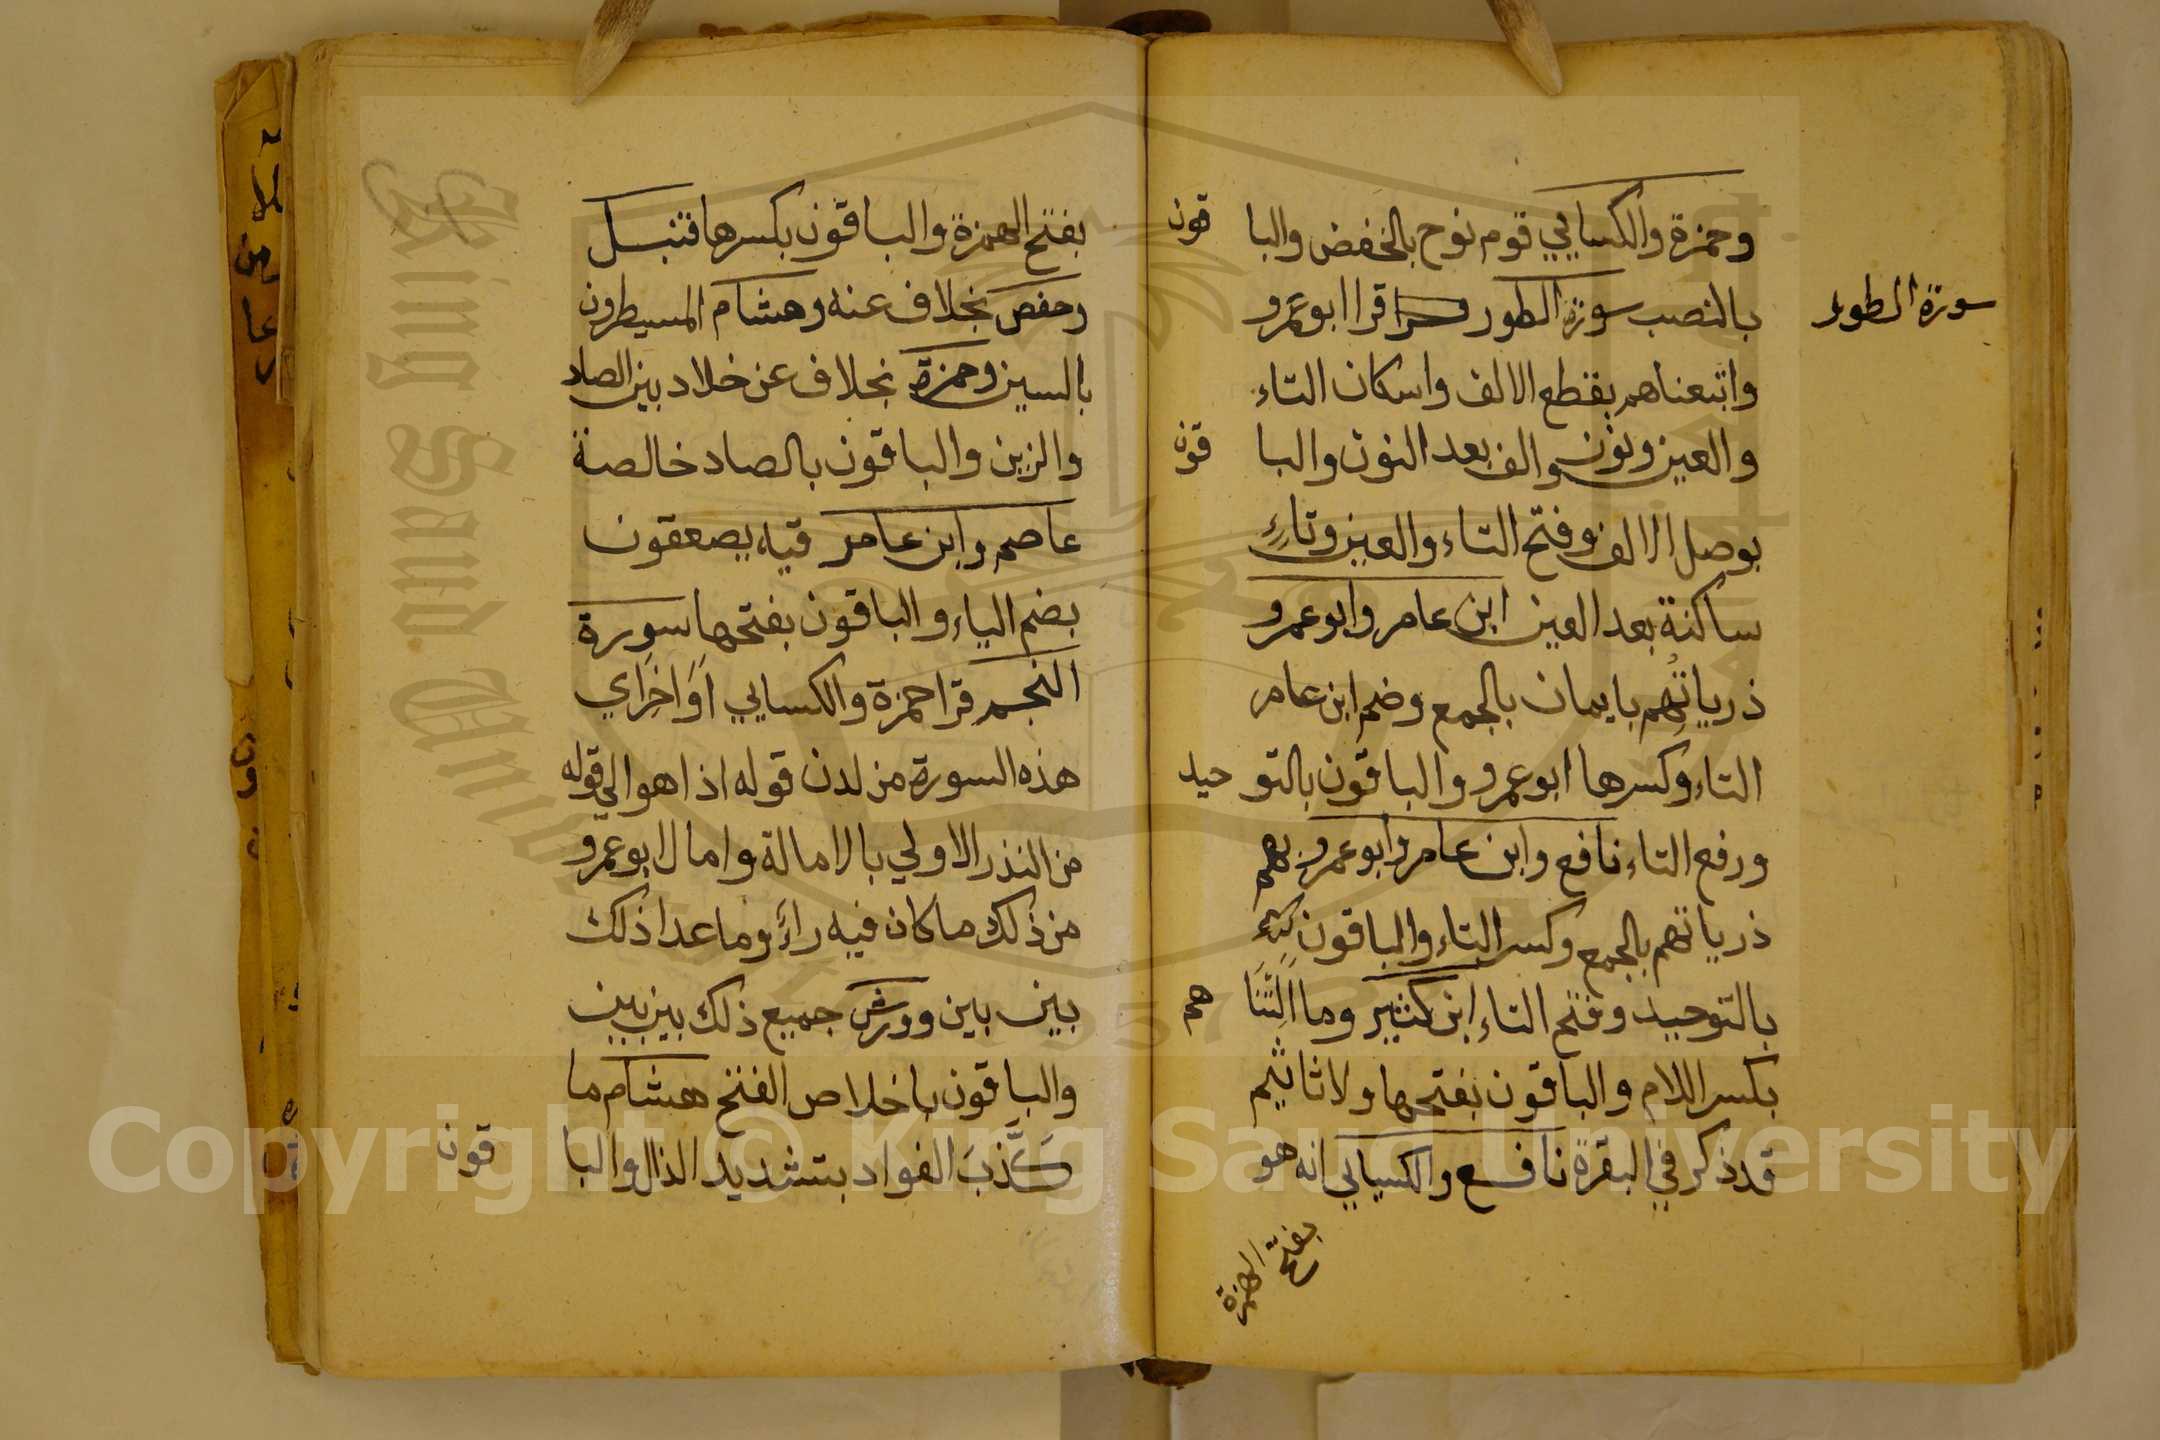 وحمزة والكسايي قوم نوح بالخفض والبا قون
سورة الطور
بالنصب سورة الطور قرا ابو عمرو
واتبعناهم بقطع الالف واسكان التاء
والعين ونون والف بعد النون والبا قون
بوصل الالف وفتح التاء والعين وتاء
ساكنة بعد العين ابن عامر وابو عمرو
ذرياتهم بايمان بالجمع وضم ابن عامر
التاء وكسرها ابو عمرو والباقون بالتو حيد
ورفع التاء نافع وابن عامر وابو عمرو بهم
ذرياتهم بالجمع وكسر التاء والباقون
بالتوحيد وفتح التاء ابن كثير وما اَلِتْنَا هم
بكسر اللام والباقون بفتحها ولا تاثيم
قد ذكر في البقرة نافع والكسايي انه هو
بفتح الهمزة
بفتح الهمزة والباقون بكسرها قنبل
وحفص بخلاف عنه وهشام المسيطرون
بالسين وحمزة بخلاف عن خلاد بين الصاد
والزين والباقون بالصاد خالصة
عاصم وابن عامر فيه يصعقون
بضم الياء والباقون بفتحها سورة
النجم قرا حمزة والكسايي اواخراي
هذه السورة من لدن قوله اذا هوا الي قوله
من النذر الاولي بالامالة وامال ابو عمرو
من ذلك ما كان فيه راء وما عدا ذلك
بين بين وورش جميع ذلك بين بين
والباقون باخلاص الفتح هشام ما
كَذَّبَ الفواد بتشديد الذال والبا قون
King Saud University
1957
Copyright © King Saud University